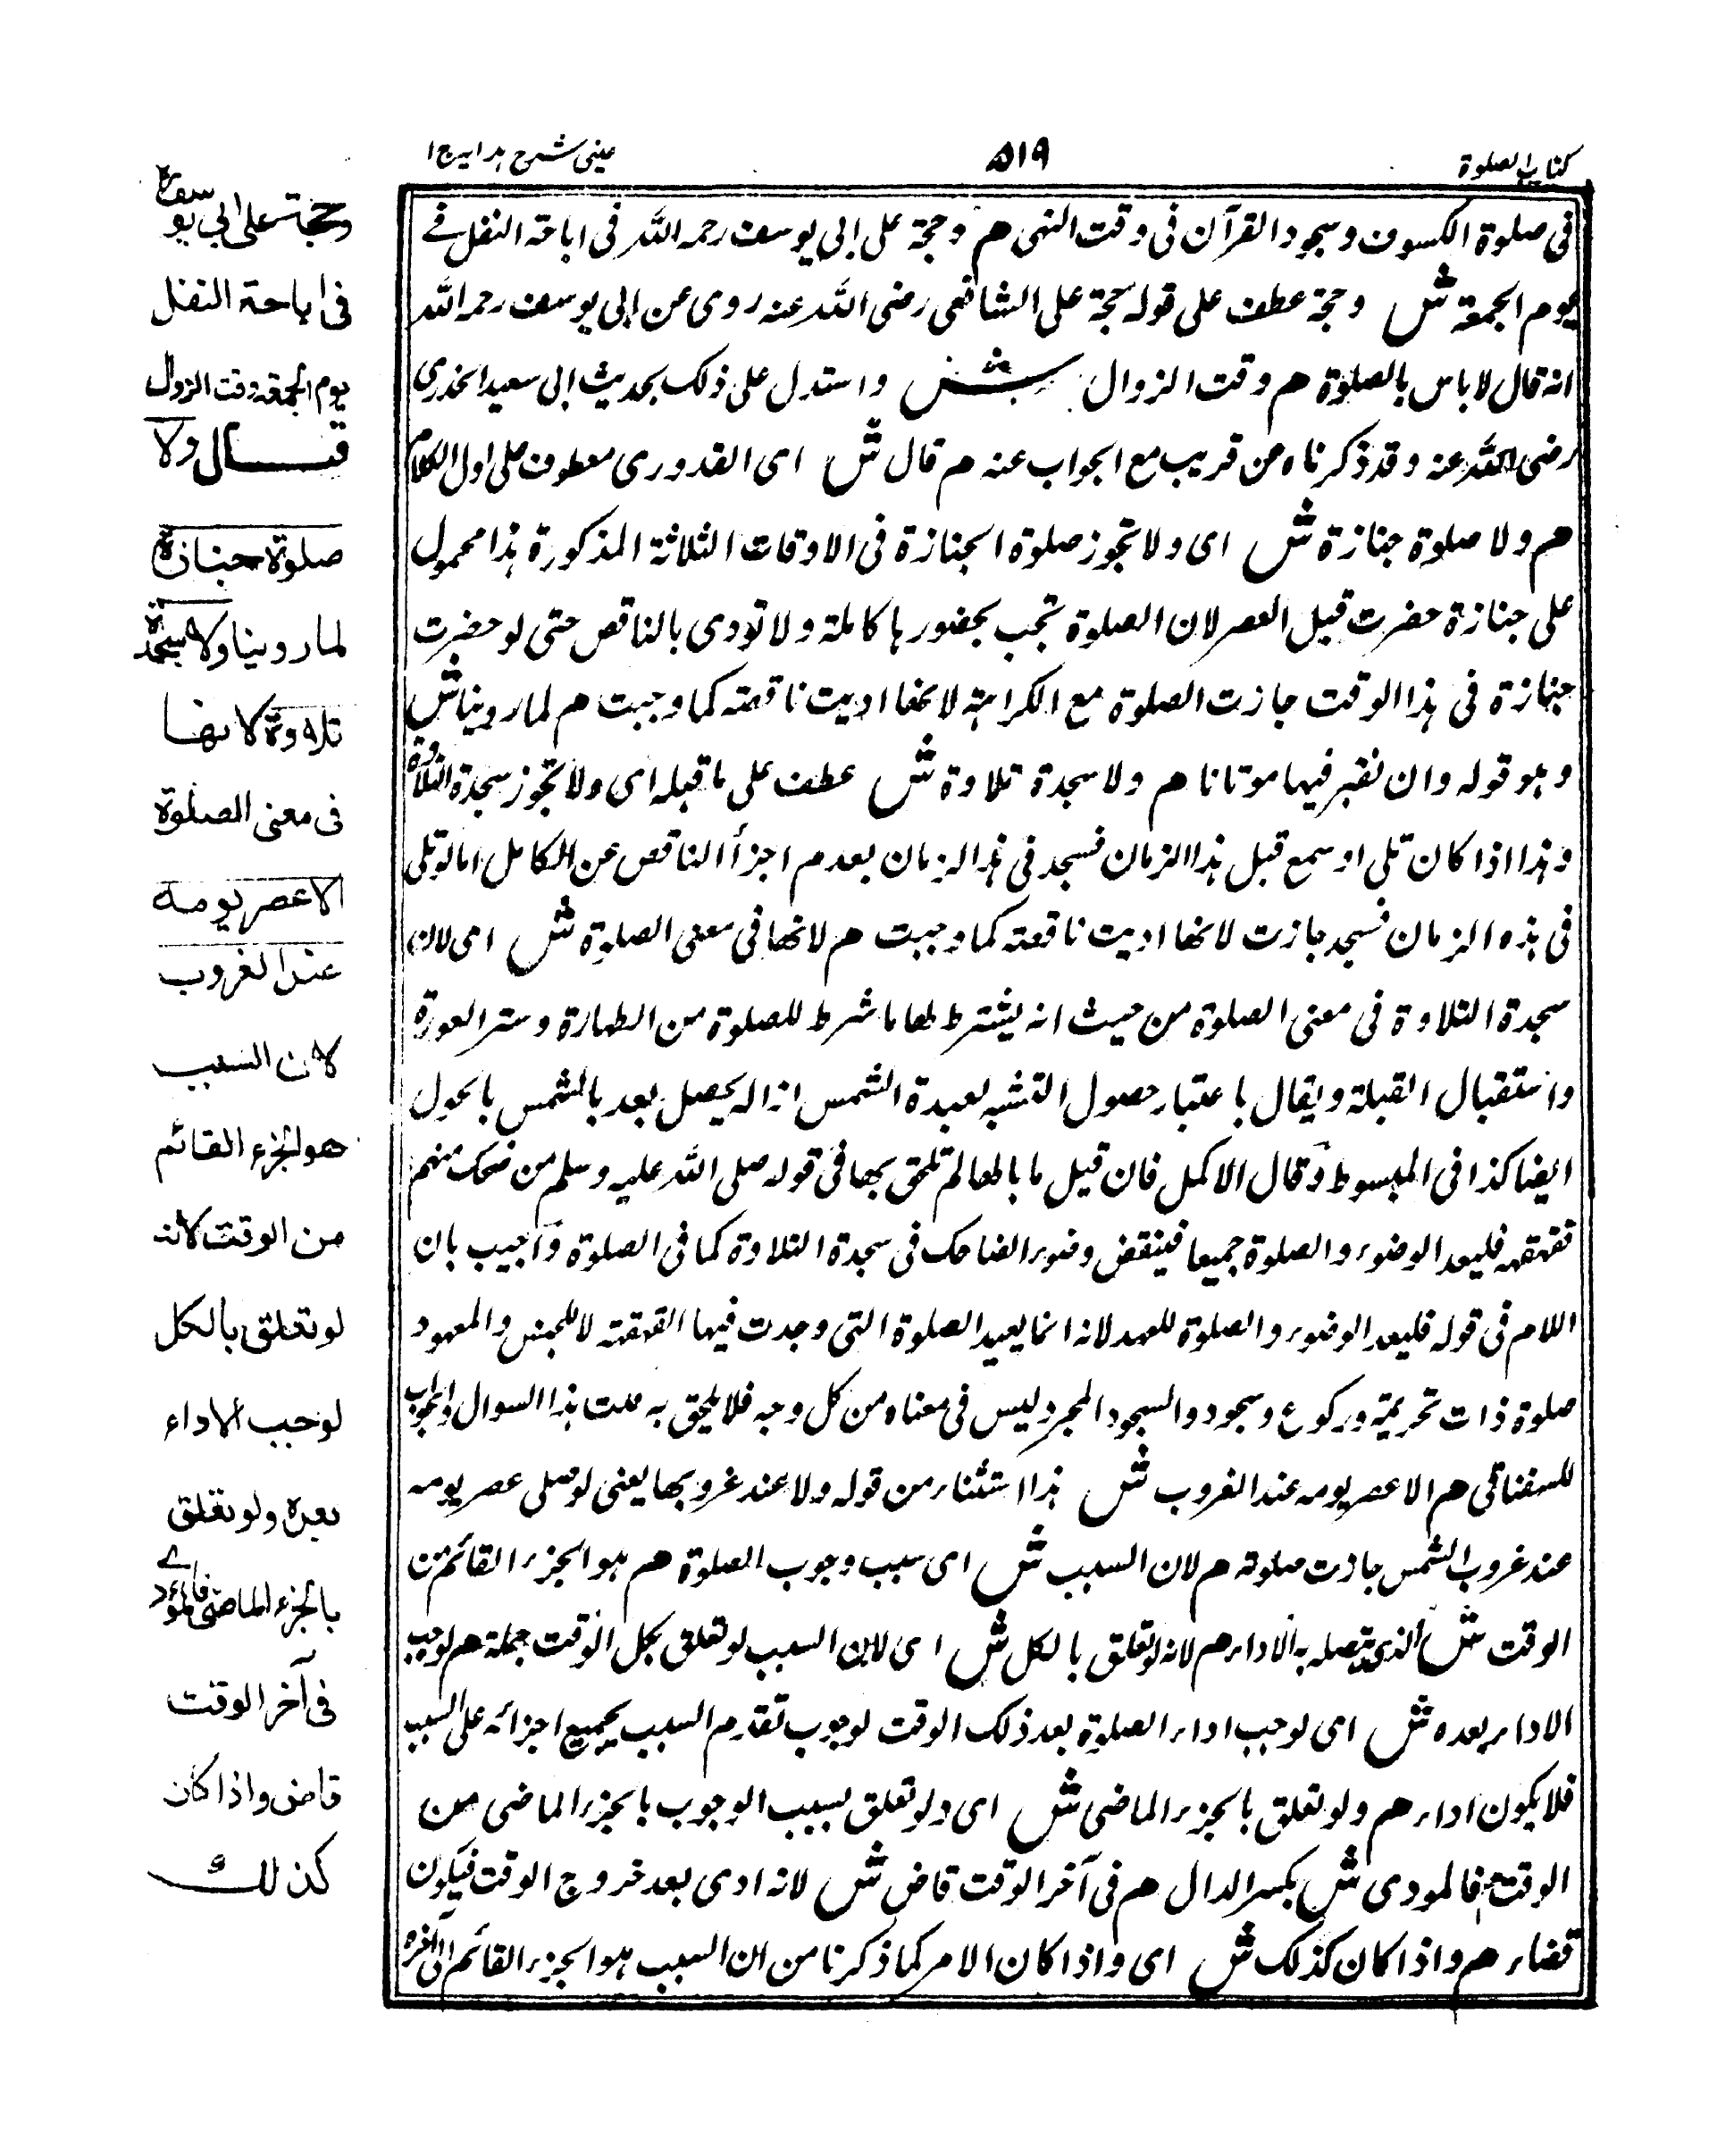 كتاب الصلوة
۵۱۹
عينى شرح هدايه ج ا
فى صلوة الكسوف وسجود القرآن فى وقت النهى هم وحجة على ابى يوسف رحمه الله فى اباحة النفل فے
يوم الجمعة ش وحجة عطف على قوله حجة على الشافعى رضى الله عنه روى عن ابى يوسف رحمه الله
انه قال لا باس بالصلوة هم وقت الزوال ش واستدل على ذلك بحديث ابى سعيد الخدرى
رضى الله عنه وقد ذكرناه من قريب مع الجواب عنه م قال ش اى القدورى معطوف على اول الكلام
هم ولا صلوة جنازة ش اى ولا تجوز صلوة الجنازة فى الاوقات الثلاثة المذكورة هذا محمول
على جنازة حضرت قبل العصر لان الصلوة تجب بحضورها كاملة ولا تودى بالناقص حتى لو حضرت
جنازة فى هذا الوقت جازت الصلوة مع الكراهة لانها اديت ناقصة كما وجبت هم لما روينا ش
وهو قوله وان نقبر فيها موتانا هم ولا سجدة تلاوة ش عطف على ما قبله اى ولا تجوز سجدة التلاوة
وهذا اذا كان تلى او سمع قبل هذا الزمان فسجد فى هذا الزمان بعدم اجزأ الناقص عن الكامل اما لو تلى
فى هذه الزمان فسجد جازت لانها اديت ناقصة كما وجبت هم لانها فى معنى الصلوة ش اى لان
سجدة التلاوة فى معنى الصلوة من حيث انه يشترط لها ما شرط للصلوة من الطهارة وستر العورة
واستقبال القبلة ويقال باعتبار حصول التشبه لعبدة الشمس انه يحصل بعد بالشمس بالحول
ايضا كذا فى المبسوط وقال الاكمل فان قيل ما بالها لم تلحق بها فى قوله صلى الله عليه وسلم من ضحك منهم
قهقهه فليعد الوضوء والصلوة جميعا فينقض وضوء الضاحك فى سجدة التلاوة كما فى الصلوة واجيب بان
اللام فى قوله فليعد الوضوء والصلوة للعهد لانه انما يعيد الصلوة التى وجدت فيها القهقهة لا للجنس والمعهود
صلوة ذات تحريمة وركوع وسجود والسجود المجرد ليس فى معناه من كل وجه فلا يلحق به قلت هذا السوال والجواب
للسغناقى هم الا عصر يومه عند الغروب ش هذا استثناء من قوله ولا عند غروبها يعنى لو صلى عصر يومه
عند غروب الشمس جازت صلوته هم لان السبب ش اى سبب وجوب الصلوة هم هو الجزء القائم من
الوقت ش الذى يتصله به الاداء هم لانه لو تعلق بالكل ش اى لان السبب لو تعلق بكل الوقت جملة هم لوجب
الاداء بعده ش اى لوجب اداء الصلوة بعد ذلك الوقت لوجوب تقدم السبب بجميع اجزائه على السبب
فلا يكون اداء هم ولو تعلق بالجزء الماضى ش اى ولو تعلق بسبب الوجوب بالجزء الماضى من
الوقت هم فالمودى ش بكسر الدال هم فى آخر الوقت قاض ش لانه ادى بعد خروج الوقت فيكون
قضاء هم واذا كان كذلك ش اى واذا كان الامر كما ذكرنا من ان السبب هو الجزء القائم الى آخره
وحجة على ابى يوسفؒ
فى اباحة النفل
يوم الجمعة وقت الزوال
قال ولا
صلوة جنازة
لما روينا ولا سجدة
تلاوة لانها
فى معنى الصلوة
الا عصر يومه
عند الغروب
لان السبب
هو الجزء القائم
من الوقت لانه
لو تعلق بالكل
لوجب الاداء
بعده ولو تعلق
بالجزء الماضى فالمؤدى
فى آخر الوقت
قاض واذا كان
كذلك